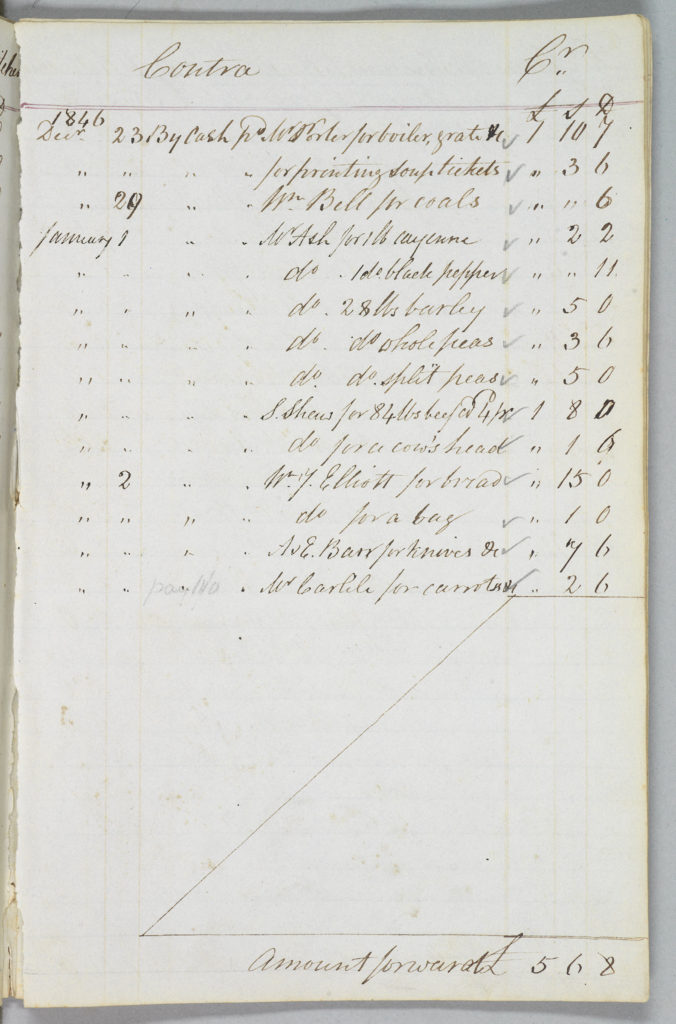 Contra Cr
£ s D
1846
Decr. 23 By Cash pd Mr Porter for boiler, grate &c 1 10 7
" " " " for printing soup tickets " 3 6
" 29 " " Wm Bell for coals " " 6
January 1 " " Mr Ash for 1 lb cayenne " 2 2
" " " " do . 1 do. black pepper " " 11
" " " " do. 28 lbs barley " 5 0
" " " " do. do. whole peas " 3 6
" " " " do. do. split peas " 5 0
" " " " S. Shaws for 84 lbs beef @ 4 1 8 0
" " " " do for a cow's head " 1 6
" 2 " " Wm J. Elliott for bread " 15 0
" " " " do for a bag " 1 0
" " " " A & E. Barr for knives &c " 7 6
" " " " Mr Carlile for carrots &c " 2 6
Amount forward £ 5 6 8